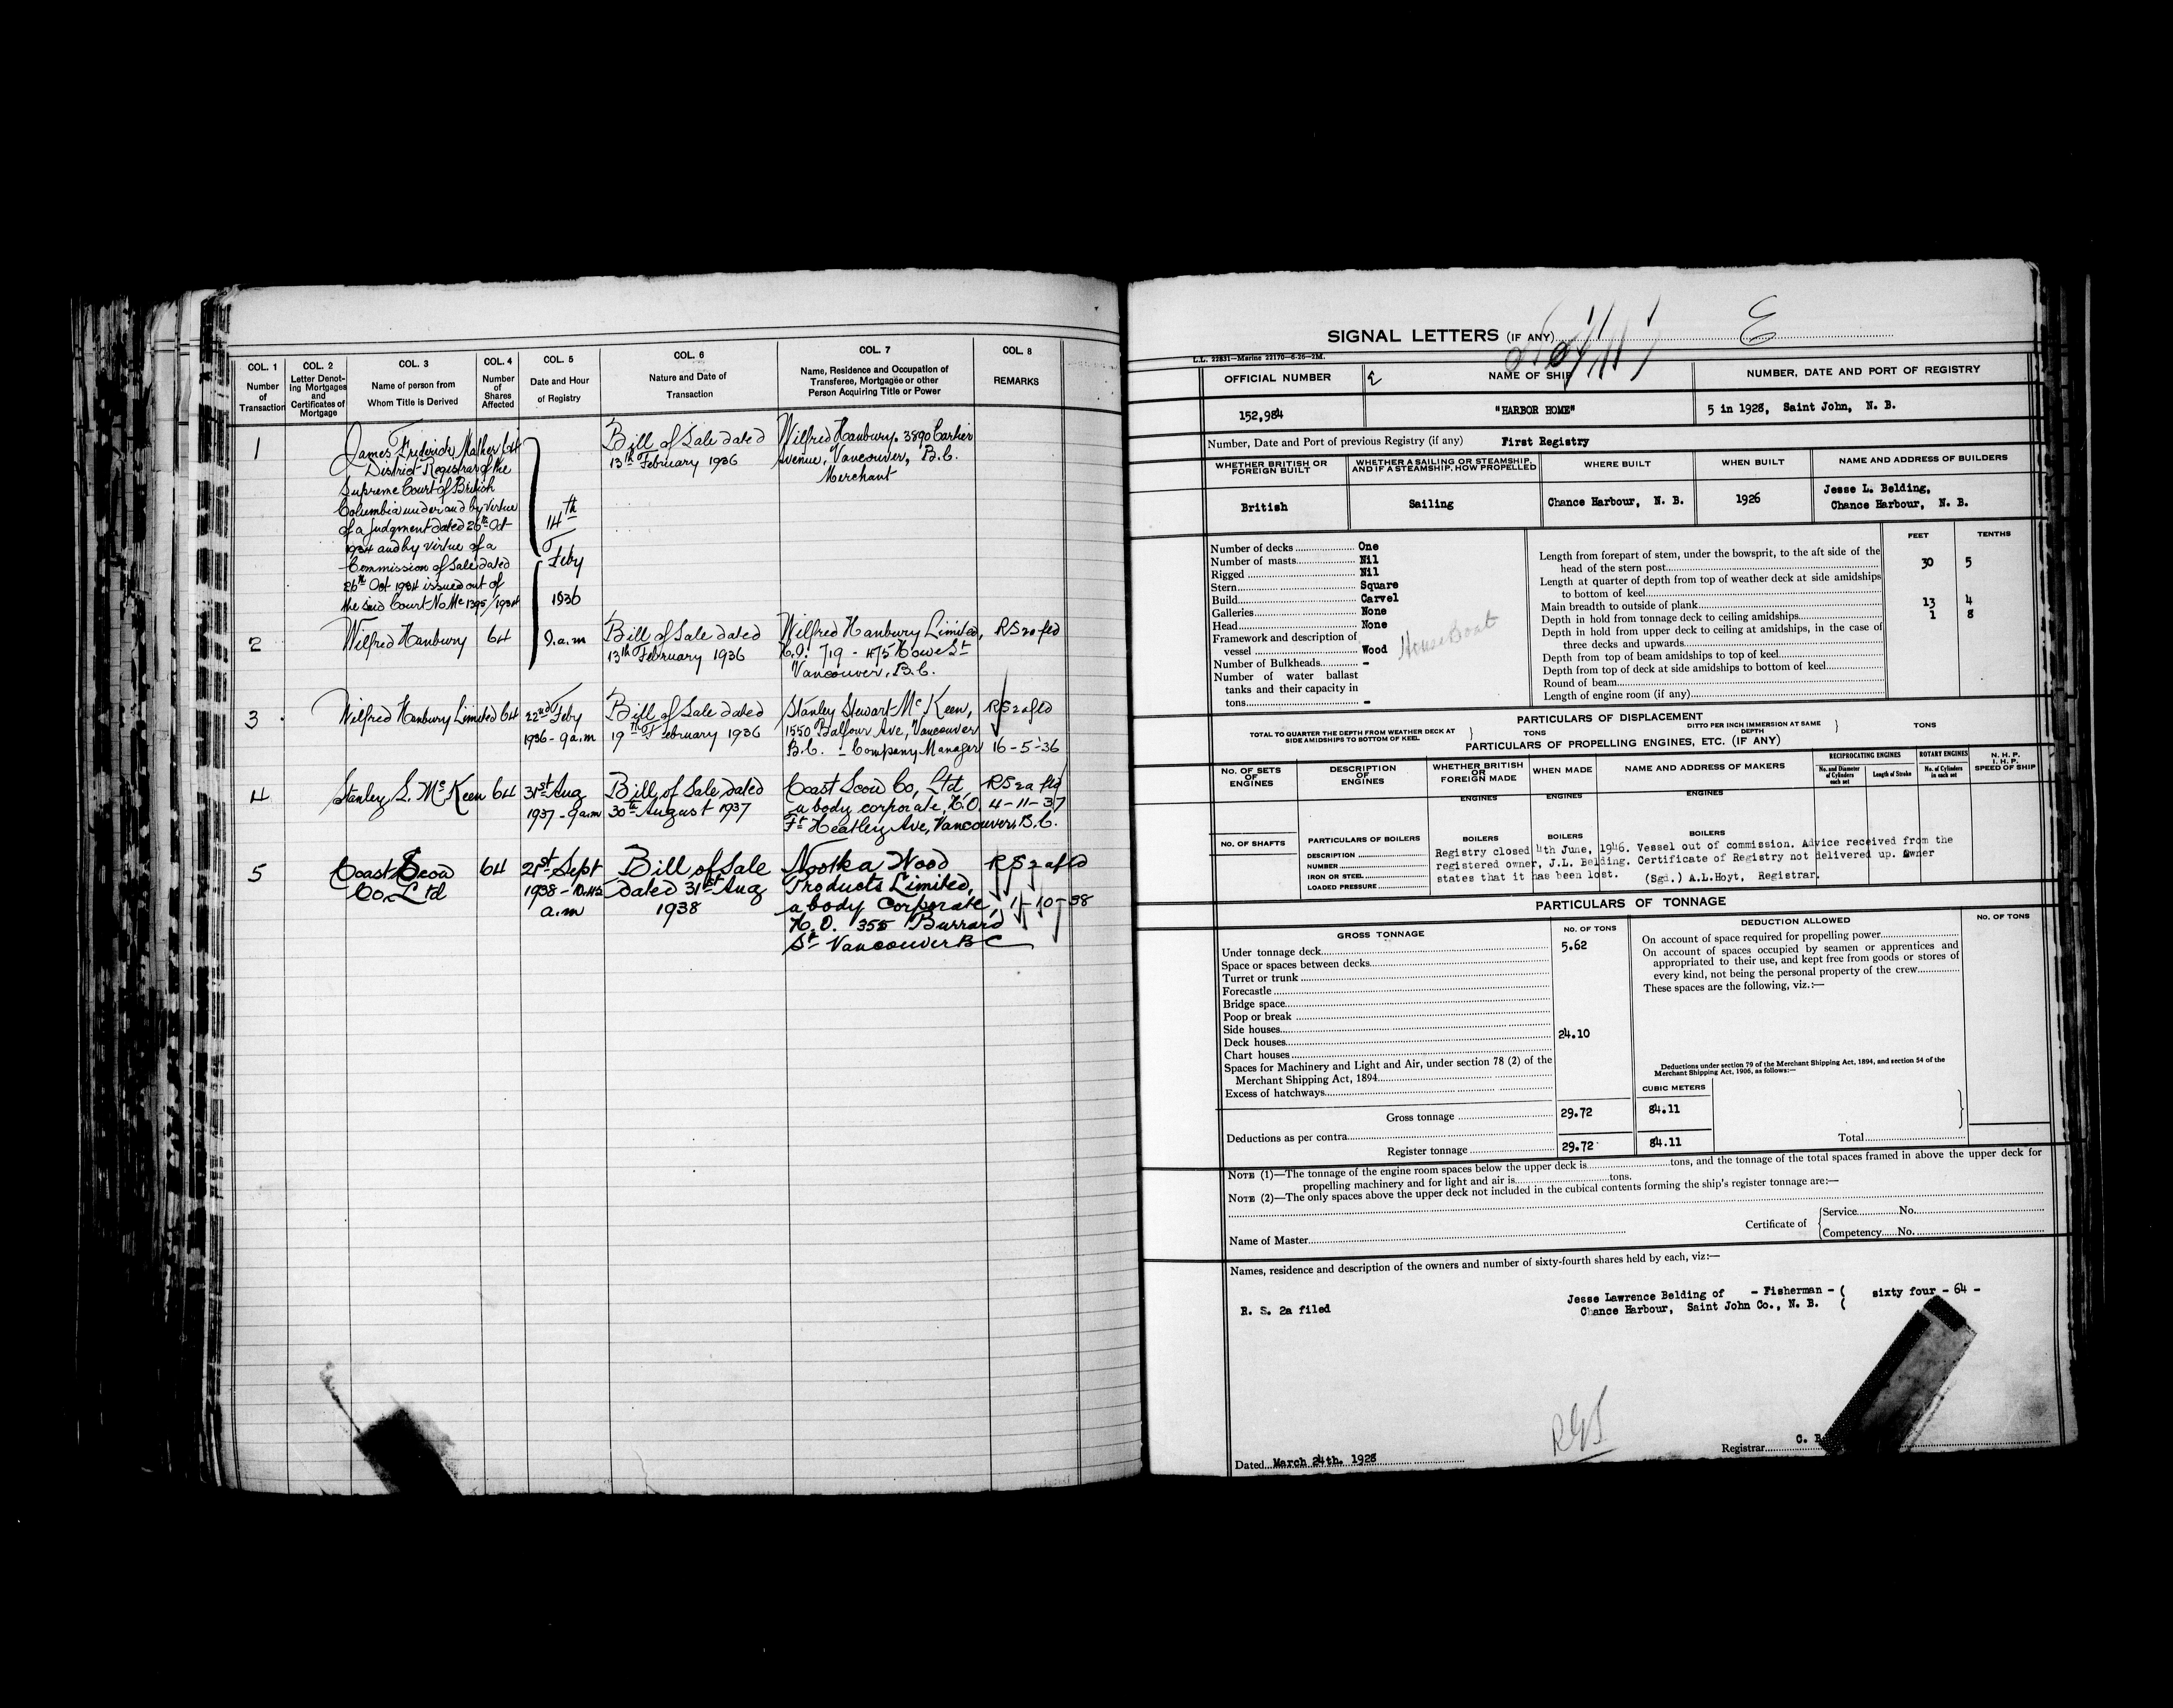 COL. 1
Number
of
Transaction
COL. 2
Letter Denot-
ing Mortgages
and
Certificates of
Mortgage
COL. 3
Name of person from
Whom Title is Derived
COL. 4
Number
of
Shares
Affected
COL. 5
Date and Hour
of Registry
COL. 6
Nature and Date of
Transaction
COL. 7
Name, Residence and Occupation of
Transferee, Mortgagee or other
Person Acquiring Title or Power
COL. 8
REMARKS
1
James Frederick Mather 64
District Registrar of the
Supreme Court of British
Columbia under and by virtue
of a Judgment dated 26th Oct
1934 and by virtue of a
Commission of Sale dated
26th Oct 1934 issued out of
the said Court No Mc 1395/1934
14th
Feby
1936
9.a.m
Bill of Sale dated
13th February 1936
Wilfred Hanbury. 3890 Cartier
Avenue, Vancouver, B.C.
Merchant
2
Wilfred Hanbury 64
Bill of Sale dated
13th February 1936
Wilfred Hanbury Limited,
H.O. 719 - 475 Howe St
Vancouver, B.C.
RS 2a fld
3
Wilfred Hanbury Limited 64
22nd Feby
1936 - 9a.m
Bill of Sale dated
19th February 1936
Stanley Stewart McKeen,
1550 Balfour Ave, Vancouver
B.C. - Company Manager
RS 2a fld
16-5-36
4
Stanley S. McKeen 64
31st Aug
1937 - 9a.m
Bill of Sale dated
30th August 1937
Coast Scow Co, Ltd,
a body corporate, H.O.
Ft Heatley Ave, Vancouver, B.C.
RS 2a fld
4-11-37
5
Coast Scow
Co. Ltd
64
21st Sept
1938 -
a.m
Bill of Sale
dated 31st Aug
1938
Nootka Wood
Products Limited,
a body Corporate,
H.O. 355 Burrard
St Vancouver BC
RS 2a fld
1-10-38
SIGNAL LETTERS (IF ANY)
E
L.L. 22831—Marine 22170—6-26—2M.
OFFICIAL NUMBER
NAME OF SHIP
NUMBER, DATE AND PORT OF REGISTRY
152,984
"HARBOR HOME"
5 in 1928, Saint John, N. B.
Number, Date and Port of previous Registry (if any) First Registry
WHETHER BRITISH OR
FOREIGN BUILT
WHETHER A SAILING OR STEAMSHIP,
AND IF A STEAMSHIP, HOW PROPELLED
WHERE BUILT
WHEN BUILT
NAME AND ADDRESS OF BUILDERS
British
Sailing
Chance Harbour, N. B.
1926
Jesse L. Belding,
Chance Harbour, N. B.
Number of decks One
Number of masts Nil
Rigged Nil
Stern Square
Build Carvel
Galleries None
Head None
Framework and description of
vessel Wood
House Boat
Number of Bulkheads -
Number of water ballast
tanks and their capacity in
tons -
FEET TENTHS
Length from forepart of stem, under the bowsprit, to the aft side of the
head of the stern post 30 5
Length at quarter of depth from top of weather deck at side amidships
to bottom of keel
Main breadth to outside of plank 13 4
Depth in hold from tonnage deck to ceiling amidships 1 8
Depth in hold from upper deck to ceiling at amidships, in the case of
three decks and upwards
Depth from top of beam amidships to top of keel
Depth from top of deck at side amidships to bottom of keel
Round of beam
Length of engine room (if any)
PARTICULARS OF DISPLACEMENT
TOTAL TO QUARTER THE DEPTH FROM WEATHER DECK AT
SIDE AMIDSHIPS TO BOTTOM OF KEEL } TONS
DITTO PER INCH IMMERSION AT SAME
DEPTH } TONS
PARTICULARS OF PROPELLING ENGINES, ETC. (IF ANY)
No. OF SETS
OF
ENGINES
DESCRIPTION
OF
ENGINES
WHETHER BRITISH
OR
FOREIGN MADE
WHEN MADE
NAME AND ADDRESS OF MAKERS
RECIPROCATING ENGINES
No. and Diameter
of Cylinders
each set
Length of Stroke
ROTARY ENGINES
No. of Cylinders
in each set
N. H. P.
I. H. P.
SPEED OF SHIP
ENGINES
ENGINES
ENGINES
No. OF SHAFTS
PARTICULARS OF BOILERS
BOILERS
BOILERS
BOILERS
DESCRIPTION
NUMBER
IRON OR STEEL
LOADED PRESSURE
Registry closed 4th June, 1946. Vessel out of commission. Advice received from the
registered owner, J.L. Belding. Certificate of Registry not delivered up. Owner
states that it has been lost. (Sgd.) A.L.Hoyt, Registrar.
PARTICULARS OF TONNAGE
GROSS TONNAGE
No. OF TONS
DEDUCTION ALLOWED
No. OF TONS
Under tonnage deck 5.62
Space or spaces between decks
Turret or trunk
Forecastle
Bridge space
Poop or break
Side houses
Deck houses 24.10
Chart houses
Spaces for Machinery and Light and Air, under section 78 (2) of the
Merchant Shipping Act, 1894
Excess of hatchways
On account of space required for propelling power
On account of spaces occupied by seamen or apprentices and
appropriated to their use, and kept free from goods or stores of
every kind, not being the personal property of the crew
These spaces are the following, viz.:—
Deductions under section 79 of the Merchant Shipping Act, 1894, and section 54 of the
Merchant Shipping Act, 1906, as follows:—
CUBIC METERS
Gross tonnage 29.72 84.11
Deductions as per contra
Register tonnage 29.72 84.11
Total
NOTE (1)—The tonnage of the engine room spaces below the upper deck is tons, and the tonnage of the total spaces framed in above the upper deck for
propelling machinery and for light and air is tons.
NOTE (2)—The only spaces above the upper deck not included in the cubical contents forming the ship's register tonnage are:—
Name of Master
Certificate of
Service No.
Competency No.
Names, residence and description of the owners and number of sixty-fourth shares held by each, viz:—
R. S. 2a filed
Jesse Lawrence Belding of - Fisherman - ( sixty four - 64 -
Chance Harbour, Saint John Co., N. B. (
Dated March 24th. 1928
Registrar C.